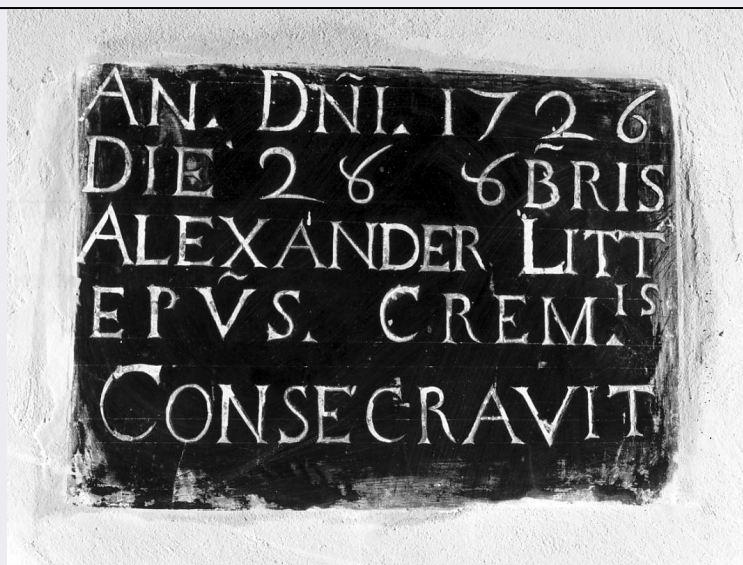 AN. DÑI. 1726
DIE 26 6B̃RIS
ALEXANDER LITT
EPṼS. CREM.IS
CONSECRAVIT